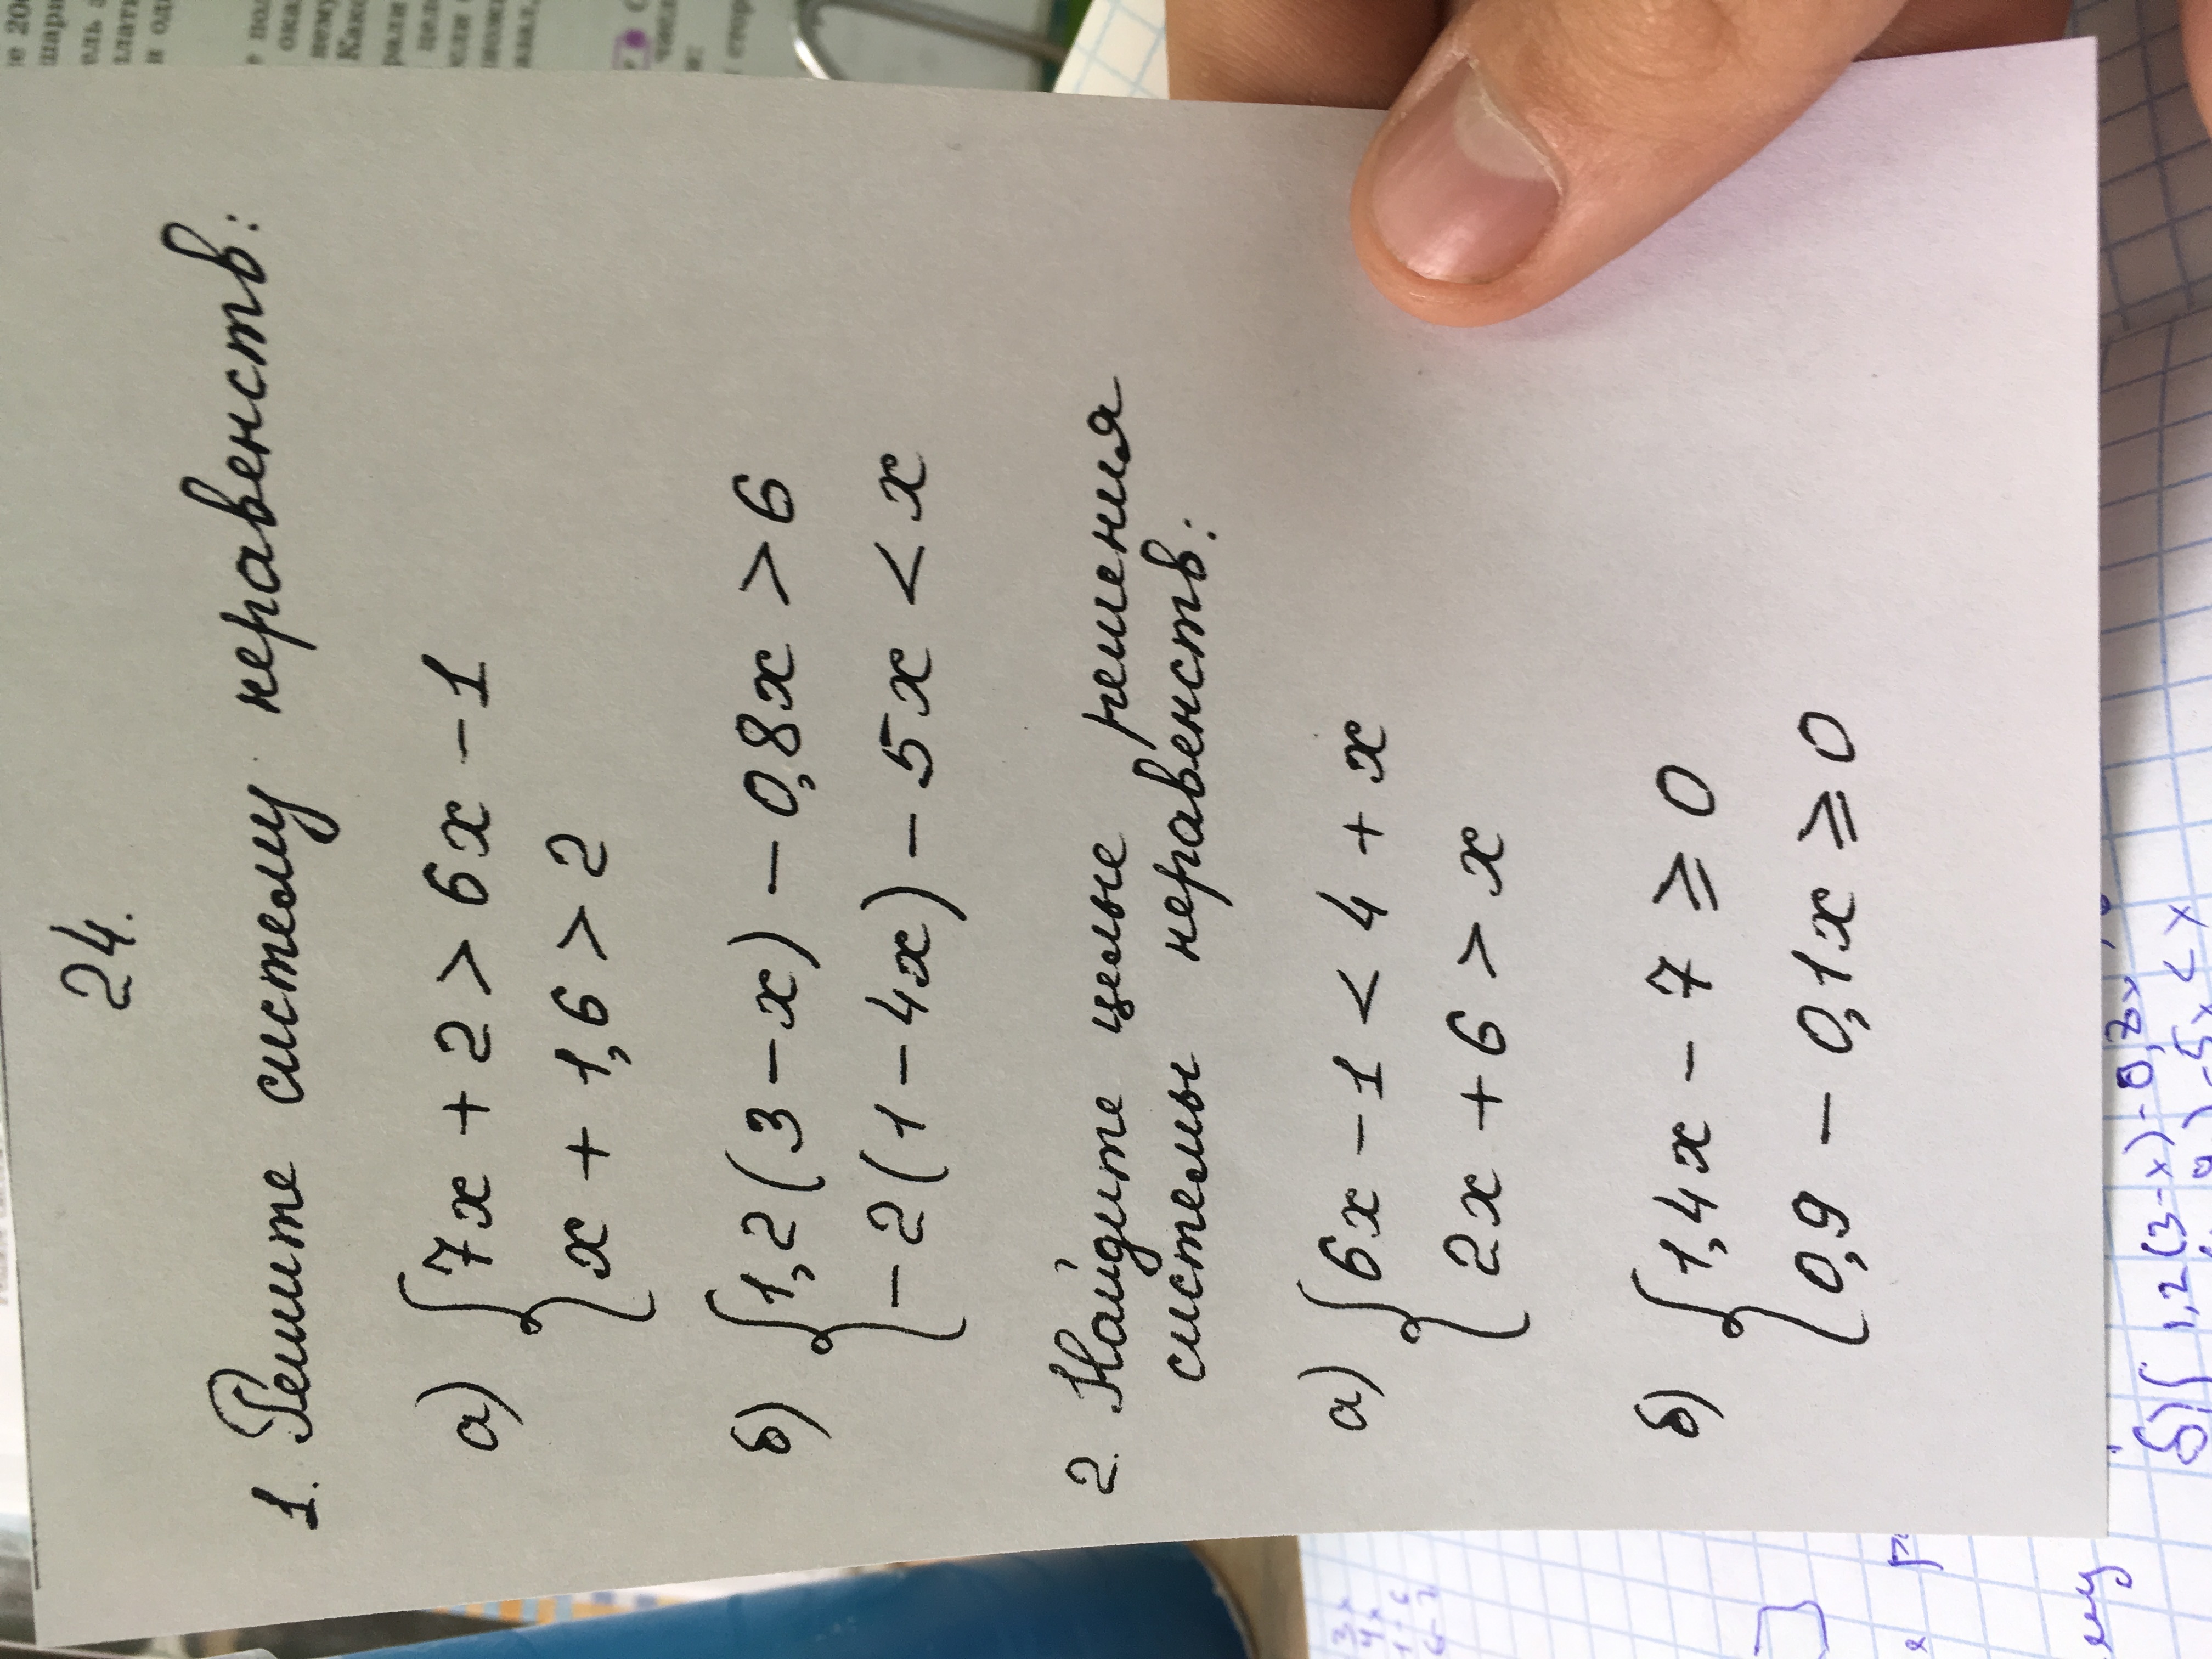 24.
1. Решите систему неравенств:
а) {7x + 2 > 6x - 1
x + 1,6 > 2
б) {1,2(3 - x) - 0,8x > 6
-2(1 - 4x) - 5x < x
2. Найдите целые решения
системы неравенств:
а) {6x - 1 < 4 + x
2x + 6 > x
б) {1,4x - 7 ⩾ 0
0,9 - 0,1x ⩾ 0